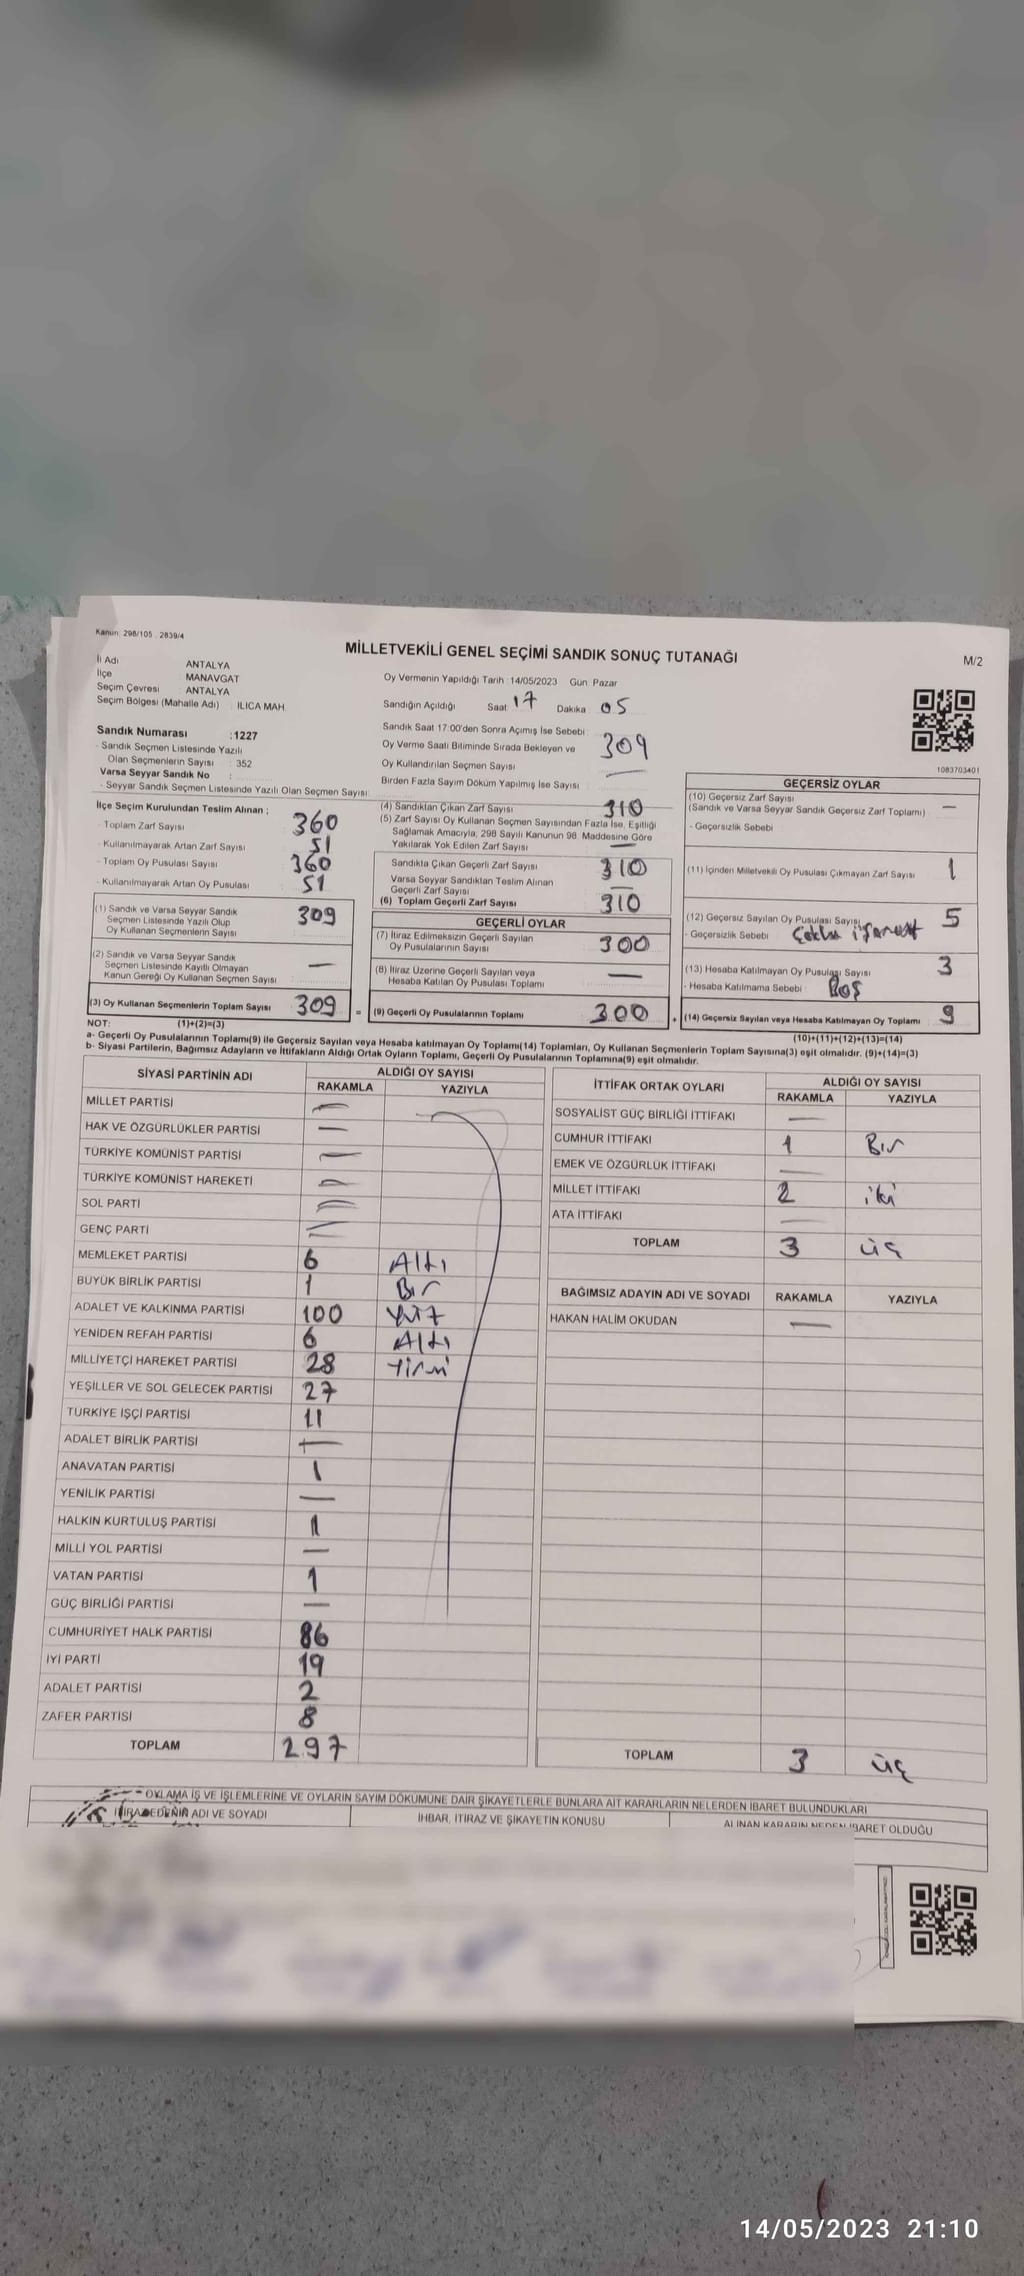 Kanun: 298/105 . 2839/4
MİLLETVEKİLİ GENEL SEÇİMİ SANDIK SONUÇ TUTANAĞI
M/2
İl Adı ANTALYA
İlçe MANAVGAT
Seçim Çevresi ANTALYA
Seçim Bölgesi (Mahalle Adı) : ILICA MAH.
Oy Vermenin Yapıldığı Tarih :14/05/2023 Gün: Pazar
Sandığın Açıldığı Saat 17 Dakika : 05
Sandık Numarası :1227
- Sandık Seçmen Listesinde Yazılı
Olan Seçmenlerin Sayısı : 352
Varsa Seyyar Sandık No :
- Seyyar Sandık Seçmen Listesinde Yazılı Olan Seçmen Sayısı:
Sandık Saat 17:00'den Sonra Açımış İse Sebebi :
Oy Verme Saati Bitiminde Sırada Bekleyen ve 309
Oy Kullandırılan Seçmen Sayısı
Birden Fazla Sayım Döküm Yapılmış İse Sayısı —
1083703401
İlçe Seçim Kurulundan Teslim Alınan ;
- Toplam Zarf Sayısı 360
- Kullanılmayarak Artan Zarf Sayısı 51
- Toplam Oy Pusulası Sayısı 360
- Kullanılmayarak Artan Oy Pusulası 51
(1) Sandık ve Varsa Seyyar Sandık
Seçmen Listesinde Yazılı Olup
Oy Kullanan Seçmenlerin Sayısı 309
(2) Sandık ve Varsa Seyyar Sandık
Seçmen Listesinde Kayıtlı Olmayan
Kanun Gereği Oy Kullanan Seçmen Sayısı —
(3) Oy Kullanan Seçmenlerin Toplam Sayısı 309 =
(4) Sandıktan Çıkan Zarf Sayısı 310
(5) Zarf Sayısı Oy Kullanan Seçmen Sayısından Fazla İse, Eşitliği
Sağlamak Amacıyla, 298 Sayılı Kanunun 98. Maddesine Göre
Yakılarak Yok Edilen Zarf Sayısı —
Sandıkta Çıkan Geçerli Zarf Sayısı 310
Varsa Seyyar Sandıktan Teslim Alınan
Geçerli Zarf Sayısı —
(6) Toplam Geçerli Zarf Sayısı 310
GEÇERLİ OYLAR
(7) İtiraz Edilmeksizin Geçerli Sayılan
Oy Pusulalarının Sayısı 300
(8) İtiraz Üzerine Geçerli Sayılan veya
Hesaba Katılan Oy Pusulası Toplamı —
(9) Geçerli Oy Pusulalarının Toplamı 300 +
GEÇERSİZ OYLAR
(10) Geçersiz Zarf Sayısı
(Sandık ve Varsa Seyyar Sandık Geçersiz Zarf Toplamı) —
- Geçersizlik Sebebi
(11) İçinden Milletvekili Oy Pusulası Çıkmayan Zarf Sayısı 1
(12) Geçersiz Sayılan Oy Pusulası Sayısı 5
- Geçersizlik Sebebi Çoklu işaret
(13) Hesaba Katılmayan Oy Pusulası Sayısı 3
- Hesaba Katılmama Sebebi : Boş
(14) Geçersiz Sayılan veya Hesaba Katılmayan Oy Toplamı 9
NOT: (1)+(2)=(3) (10)+(11)+(12)+(13)=(14)
a- Geçerli Oy Pusulalarının Toplamı(9) ile Geçersiz Sayılan veya Hesaba katılmayan Oy Toplamı(14) Toplamları, Oy Kullanan Seçmenlerin Toplam Sayısına(3) eşit olmalıdır. (9)+(14)=(3)
b- Siyasi Partilerin, Bağımsız Adayların ve İttifakların Aldığı Ortak Oyların Toplamı, Geçerli Oy Pusulalarının Toplamına(9) eşit olmalıdır.
SİYASİ PARTİNİN ADI ALDIĞI OY SAYISI
RAKAMLA YAZIYLA
MİLLET PARTİSİ —
HAK VE ÖZGÜRLÜKLER PARTİSİ —
TÜRKİYE KOMÜNİST PARTİSİ —
TÜRKİYE KOMÜNİST HAREKETİ —
SOL PARTİ —
GENÇ PARTİ —
MEMLEKET PARTİSİ 6 Altı
BÜYÜK BİRLİK PARTİSİ 1 Bir
ADALET VE KALKINMA PARTİSİ 100 Yüz
YENİDEN REFAH PARTİSİ 6 Altı
MİLLİYETÇİ HAREKET PARTİSİ 28 Yirmi
YEŞİLLER VE SOL GELECEK PARTİSİ 27
TÜRKİYE İŞÇİ PARTİSİ 11
ADALET BİRLİK PARTİSİ —
ANAVATAN PARTİSİ 1
YENİLİK PARTİSİ —
HALKIN KURTULUŞ PARTİSİ 1
MİLLİ YOL PARTİSİ —
VATAN PARTİSİ 1
GÜÇ BİRLİĞİ PARTİSİ —
CUMHURİYET HALK PARTİSİ 86
İYİ PARTİ 19
ADALET PARTİSİ 2
ZAFER PARTİSİ 8
TOPLAM 297
İTTİFAK ORTAK OYLARI ALDIĞI OY SAYISI
RAKAMLA YAZIYLA
SOSYALİST GÜÇ BİRLİĞİ İTTİFAKI —
CUMHUR İTTİFAKI 1 Bir
EMEK VE ÖZGÜRLÜK İTTİFAKI —
MİLLET İTTİFAKI 2 iki
ATA İTTİFAKI —
TOPLAM 3 üç
BAĞIMSIZ ADAYIN ADI VE SOYADI RAKAMLA YAZIYLA
HAKAN HALİM OKUDAN —
TOPLAM 3 üç
OYLAMA İŞ VE İŞLEMLERİNE VE OYLARIN SAYIM DÖKÜMÜNE DAİR ŞİKAYETLERLE BUNLARA AİT KARARLARIN NELERDEN İBARET BULUNDUKLARI
İTİRAZ EDENİN ADI VE SOYADI İHBAR, İTİRAZ VE ŞİKAYETİN KONUSU ALINAN KARARIN NEDEN İBARET OLDUĞU
14/05/2023 21:10